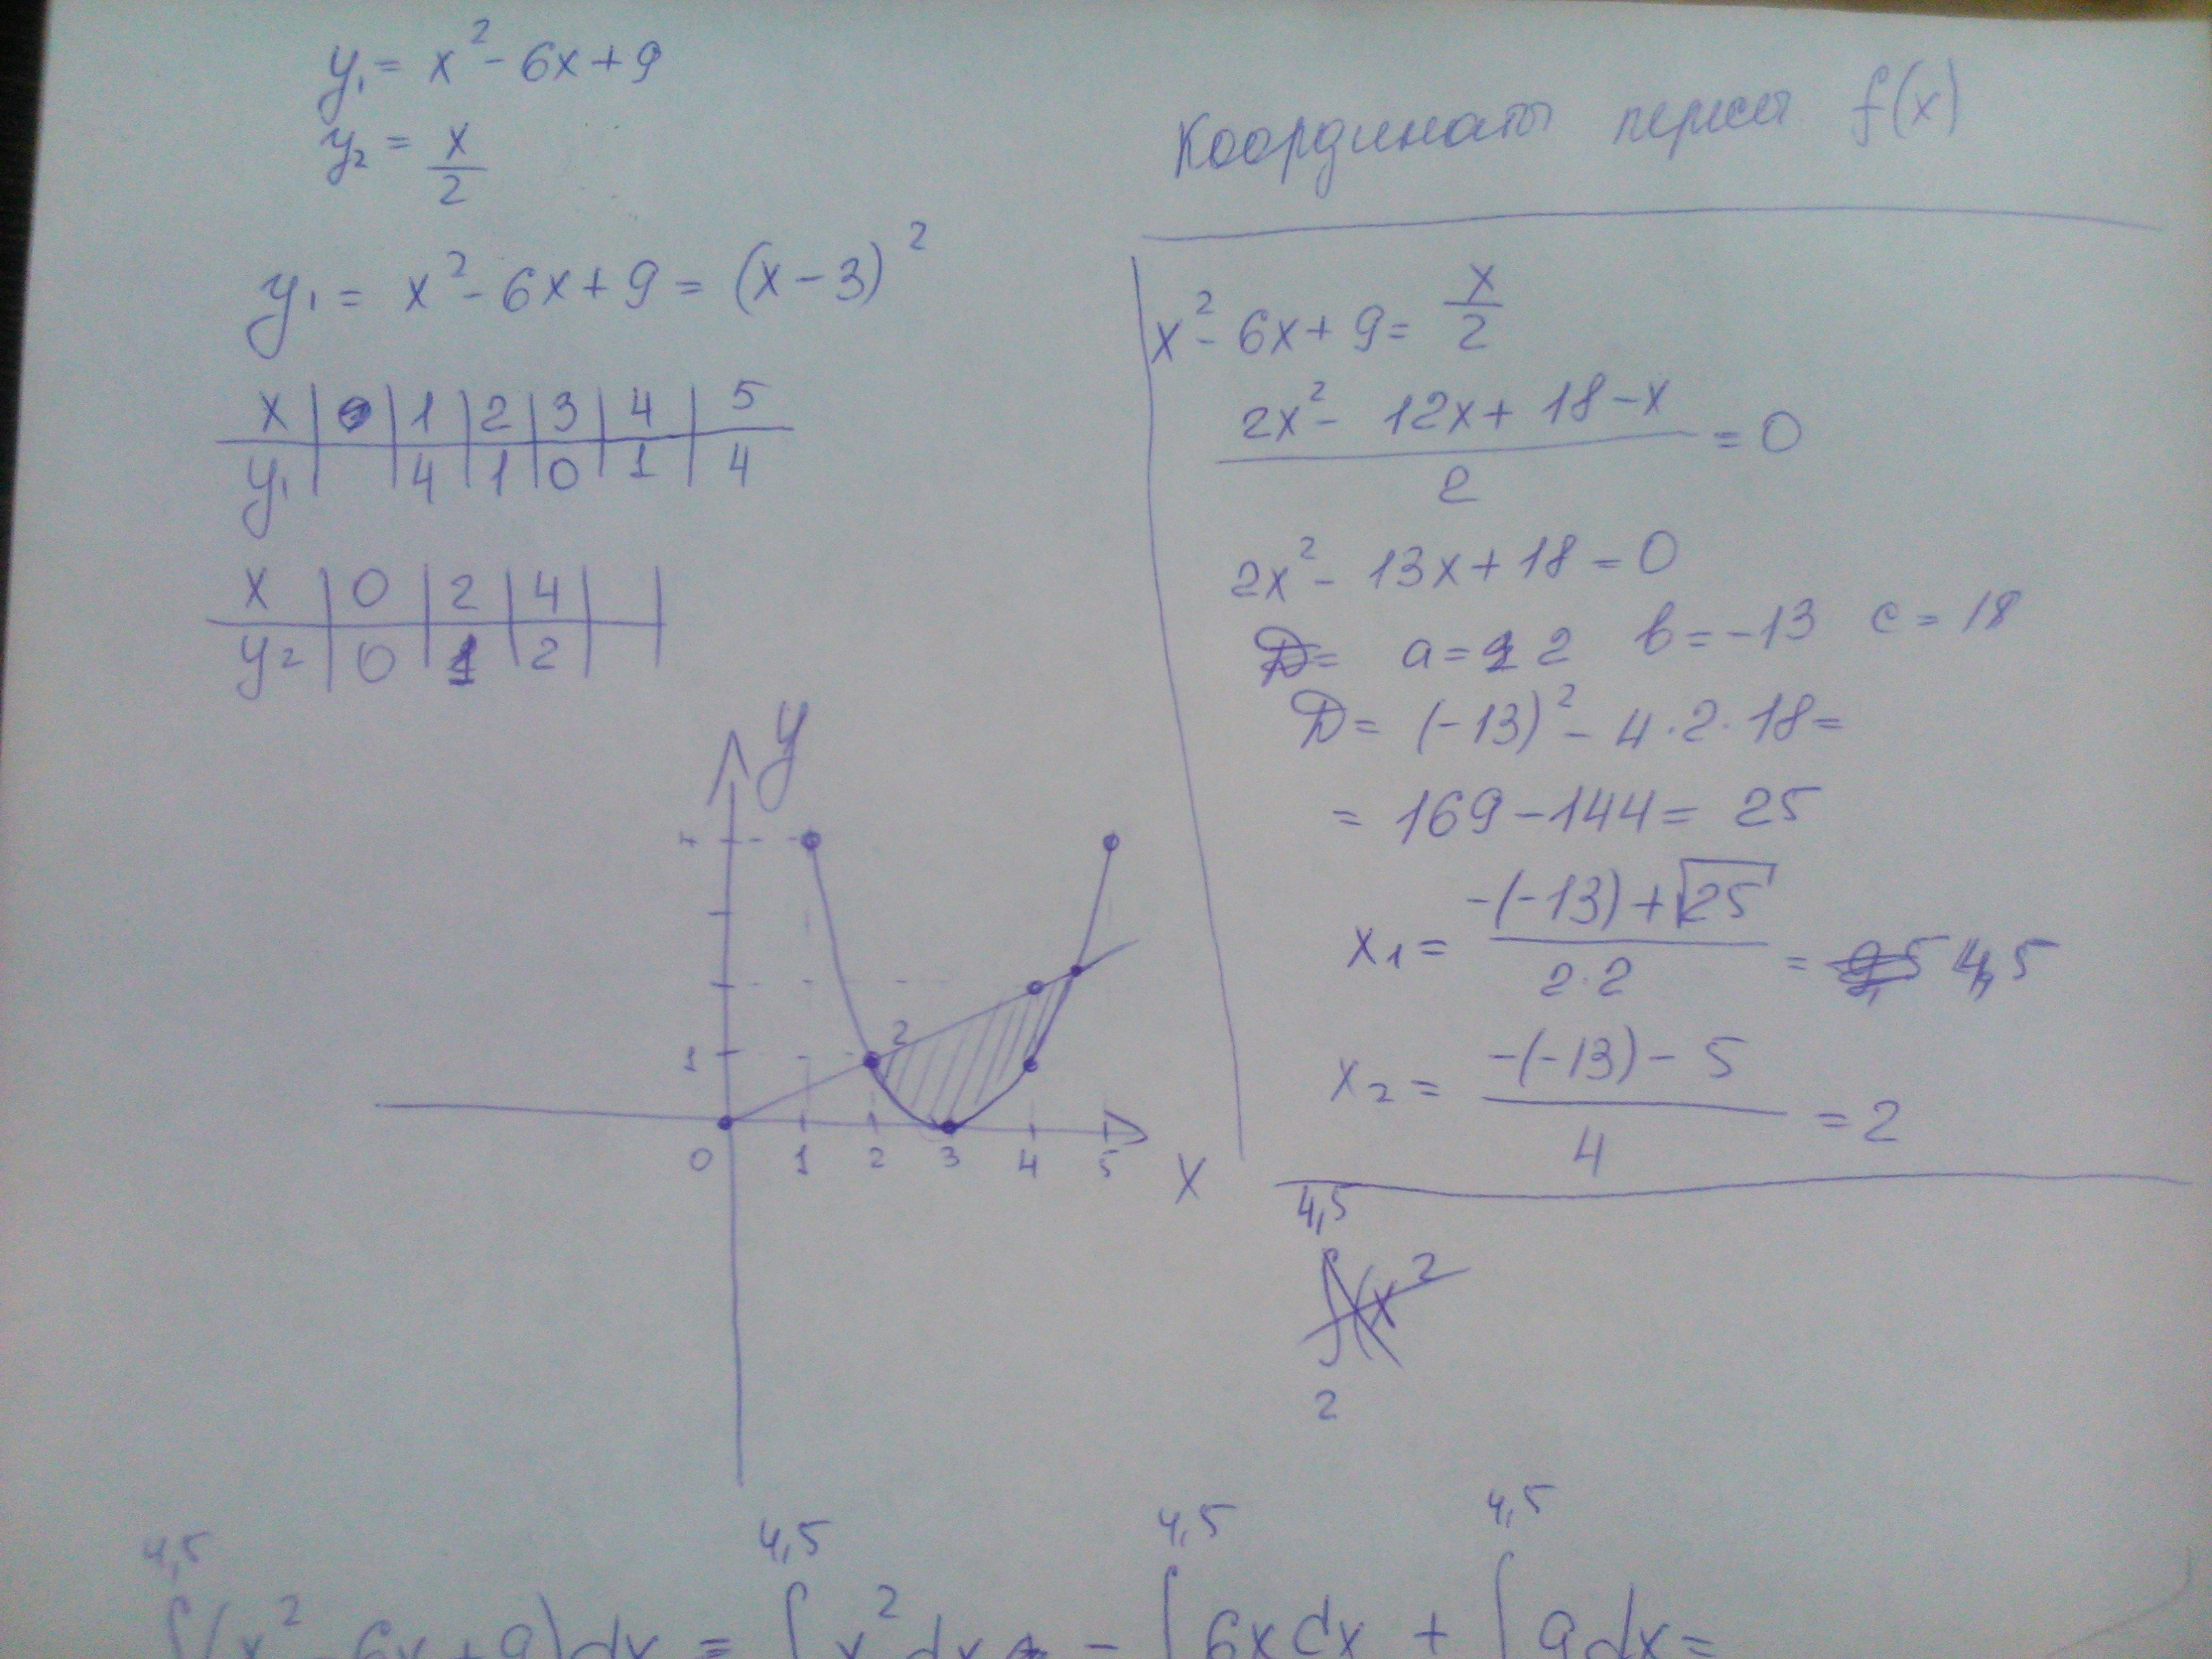 y₁ = x² - 6x + 9
y₂ = x/2
y₁ = x² - 6x + 9 = (x - 3)²
x | 1 | 2 | 3 | 4 | 5
y₁ | 4 | 1 | 0 | 1 | 4
x | 0 | 2 | 4
y₂ | 0 | 1 | 2
y
1
2
0 1 2 3 4 5
x
Координаты f(x)
x² - 6x + 9 = x/2
(2x² - 12x + 18 - x)/2 = 0
2x² - 13x + 18 = 0
D= a = 2 b = -13 c = 18
D = (-13)² - 4·2·18 =
= 169 - 144 = 25
x₁ = (-(-13) + √25)/(2·2) = 4,5
x₂ = (-(-13) - 5)/4 = 2
4,5
∫(x²
2
4,5 4,5 4,5 4,5
∫(x² - 6x + 9)dx = ∫x²dx - ∫6x dx + ∫9dx =